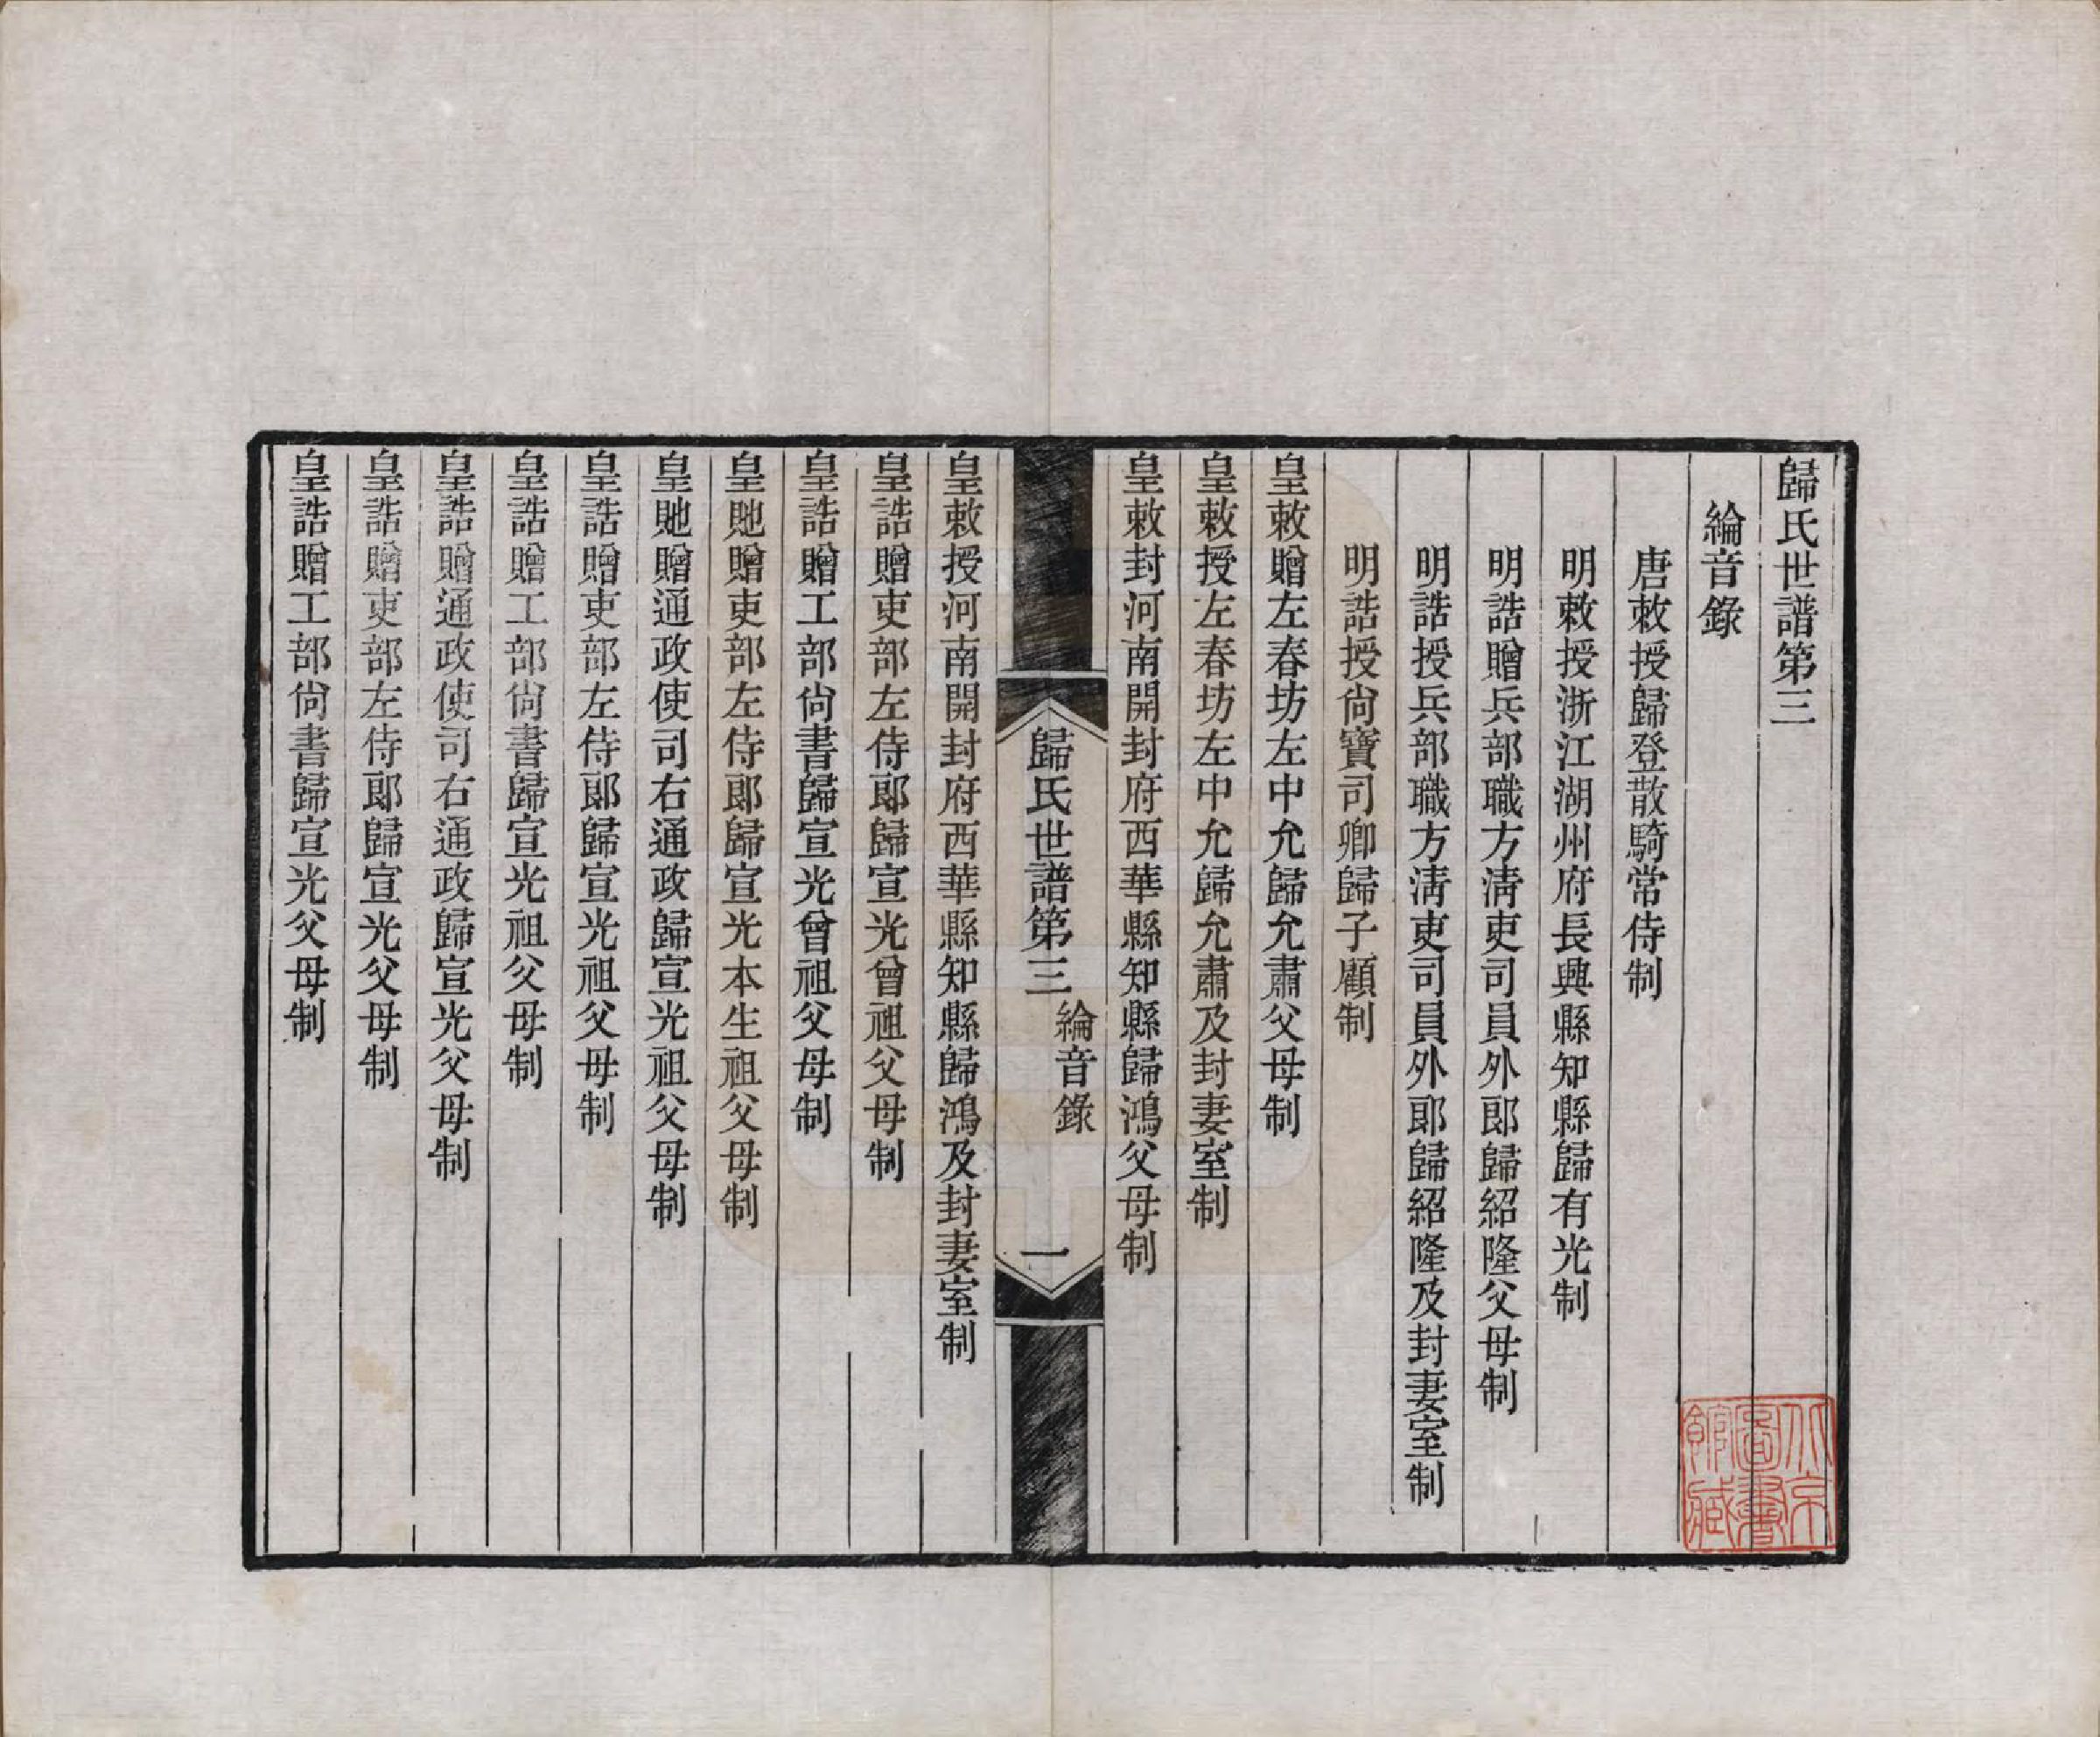 歸氏世譜第三
綸音錄
唐敕授歸登散騎常侍制
明敕授浙江湖州府長興縣知縣歸有光制
明誥贈兵部職方淸吏司員外郞歸紹隆父母制
明誥授兵部職方淸吏司員外郞歸紹隆及封妻室制
明誥授尙寶司卿歸子顧制
皇敕贈左春坊左中允歸允肅父母制
皇敕授左春坊左中允歸允肅及封妻室制
皇敕封河南開封府西華縣知縣歸鴻父母制
歸氏世譜第三
綸音錄
一
皇敕授河南開封府西華縣知縣歸鴻及封妻室制
皇誥贈吏部左侍郞歸宣光曾祖父母制
皇誥贈工部尙書歸宣光曾祖父母制
皇貤贈吏部左侍郞歸宣光本生祖父母制
皇貤贈通政使司右通政歸宣光祖父母制
皇誥贈吏部左侍郞歸宣光祖父母制
皇誥贈工部尙書歸宣光祖父母制
皇誥贈通政使司右通政歸宣光父母制
皇誥贈吏部左侍郞歸宣光父母制
皇誥贈工部尙書歸宣光父母制
北京圖書館藏